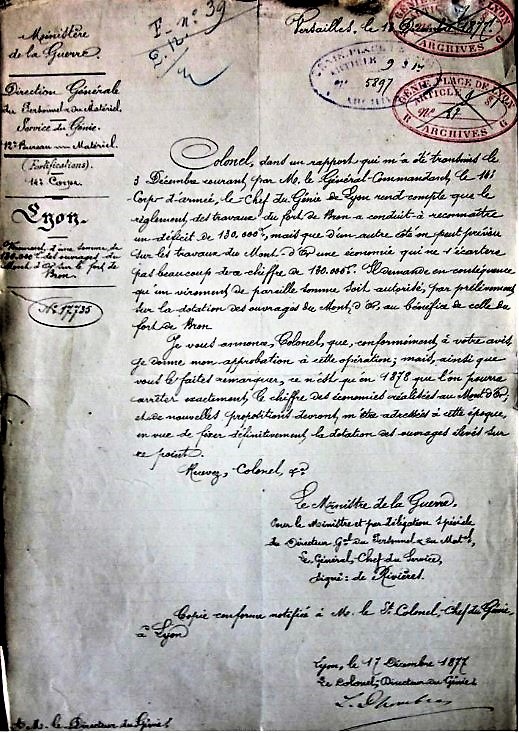 Ministère
de la Guerre.
Direction Générale
du Personnel & du Matériel.
Service du Génie.
12e Bureau Matériel.
(Fortifications).
14e Corps.
Lyon.
Virement d'une somme de
130.000f des ouvrages du
Mont d'Or sur le fort de
Bron.
No 17735
F. no 39
Versailles, le 1877.
GÉNIE PLACE DE LYON
ARTICLE 9
5897
ARCHIVES
ARCHIVES
GÉNIE PLACE DE LYON
ARTICLE 8
No 67
ARCHIVES
Colonel, dans un rapport qui m'a été transmis le
3 Décembre courant par M. le Général Commandant le 14e
Corps d'armée, le Chef du Génie de Lyon rend compte que le
règlement des travaux du fort de Bron a conduit à reconnaître
un déficit de 130.000f, mais que d'un autre côté on peut prévoir
sur les travaux du Mont d'Or une économie qui ne s'écartera
pas beaucoup de ce chiffre de 130.000f. Il demande en conséquence
qu'un virement de pareille somme soit autorisé, par prélèvement
sur la dotation des ouvrages du Mont d'Or, au bénéfice de celle du
fort de Bron
Je vous annonce, Colonel, que, conformément à votre avis,
je donne mon approbation à cette opération; mais, ainsi que
vous le faites remarquer, ce n'est qu'en 1878 que l'on pourra
arrêter exactement le chiffre des économies réalisées au Mont d'Or,
et de nouvelles propositions devront m'être adressées à cette époque,
en vue de fixer définitivement la dotation des ouvrages élevés sur
ce point.
Recevez, Colonel, &a
Le Ministre de la Guerre.
Pour le Ministre et par délégation spéciale
Le Directeur Gal du Personnel & du Matel,
Le Général, Chef du Service,
Signé: de Rivières.
Copie conforme notifiée à M. le Lt Colonel, Chef du Génie,
à Lyon
Lyon, le 17 Décembre 1877
Le Colonel, Directeur du Génie
A M. le Directeur du Génie